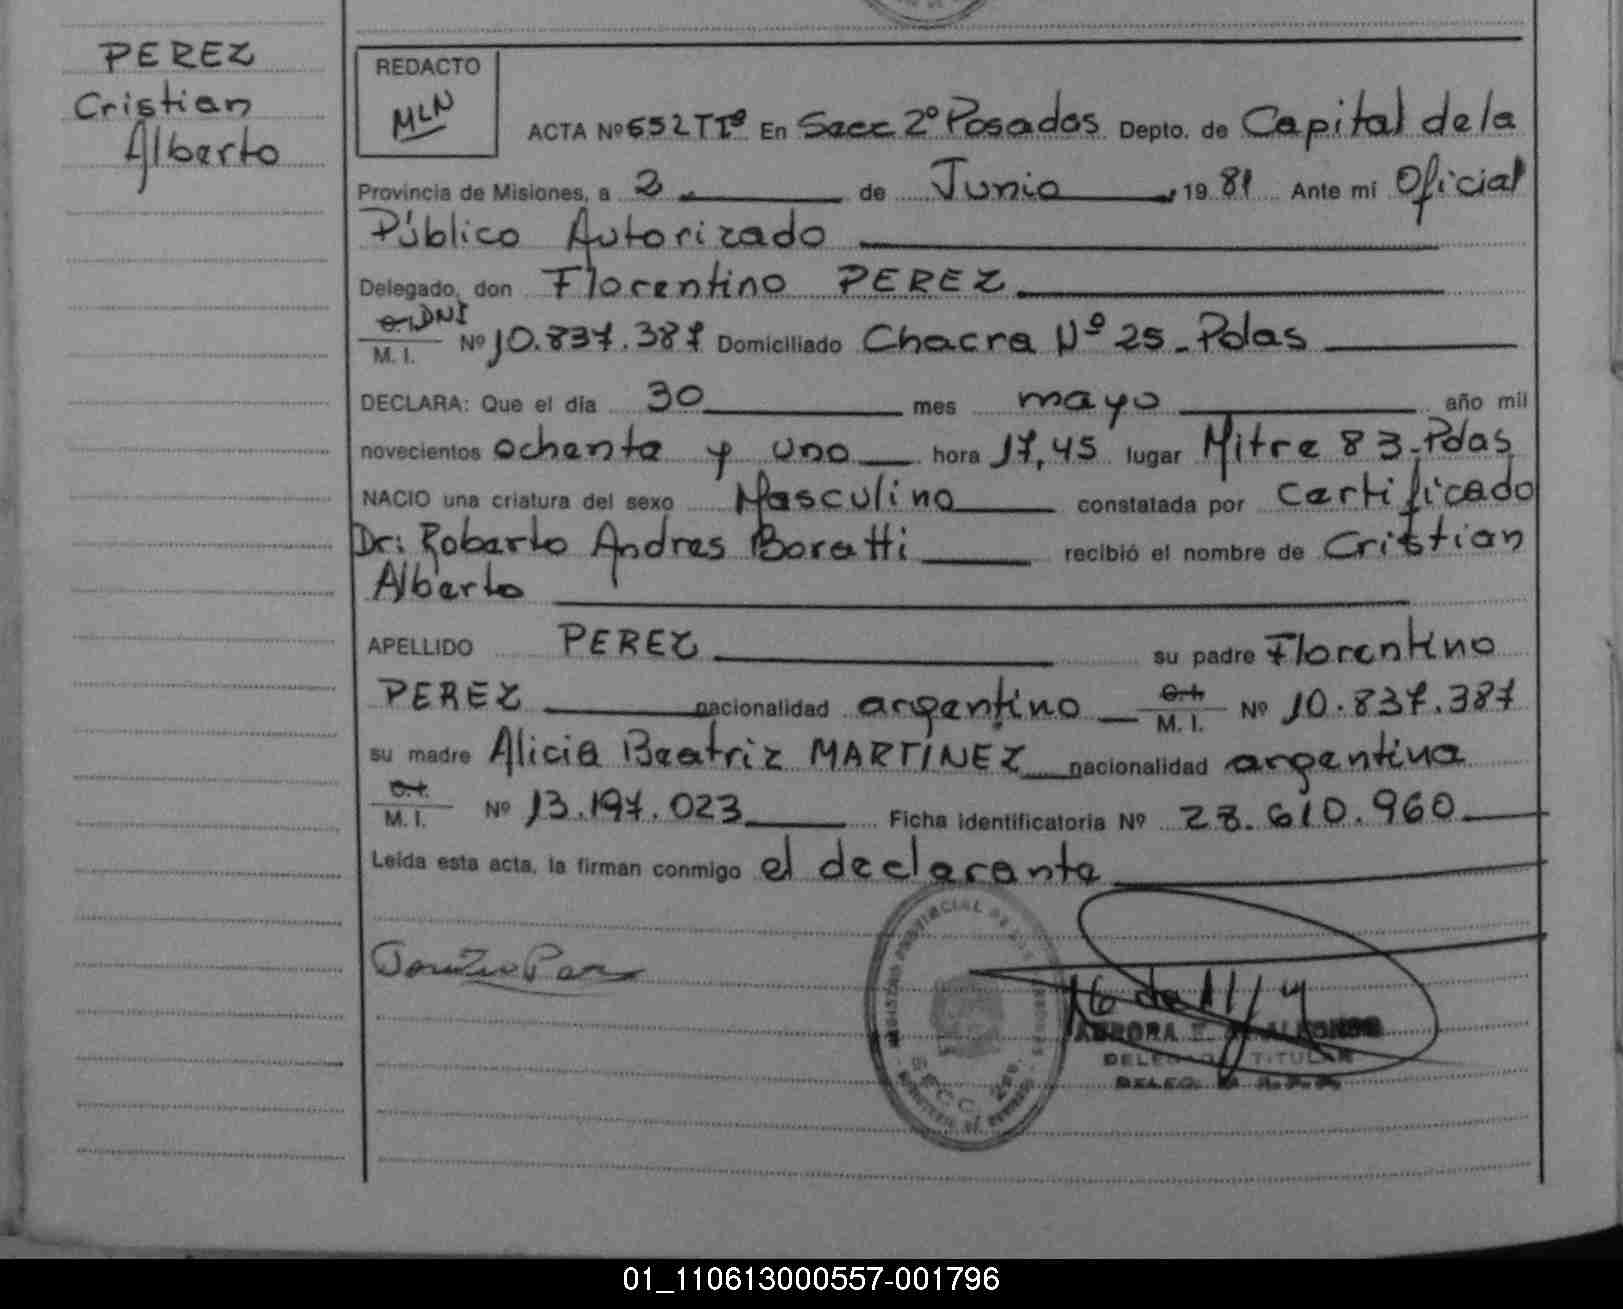 PEREZ
Cristian
Alberto
REDACTO
MLN
ACTA Nº 652 TIº En Secc 2º Posadas Depto. de Capital de la
Provincia de Misiones, a 2 de Junio 19 81 Ante mi Oficial
Público Autorizado
Delegado, don Florentino PEREZ
DNI
M. I. Nº 10.837.387 Domiciliado Chacra Nº 25 - Pdas
DECLARA: Que el día 30 mes mayo año mil
novecientos ochenta y uno hora 17,45 lugar Mitre 83 - Pdas
NACIO una criatura del sexo Masculino constatada por Certificado
Dr: Roberto Andres Boratti recibió el nombre de Cristian
Alberto
APELLIDO PEREZ su padre Florentino
PEREZ nacionalidad argentino M. I. Nº 10.837.387
su madre Alicia Beatriz MARTINEZ nacionalidad argentina
M. I. Nº 13.197.023 Ficha identificatoria Nº 28.610.960
Leída esta acta, la firman conmigo el declarante
AURORA E. ALFONSO
DELEGADO TITULAR
SECC. 2da.
01_110613000557-001796